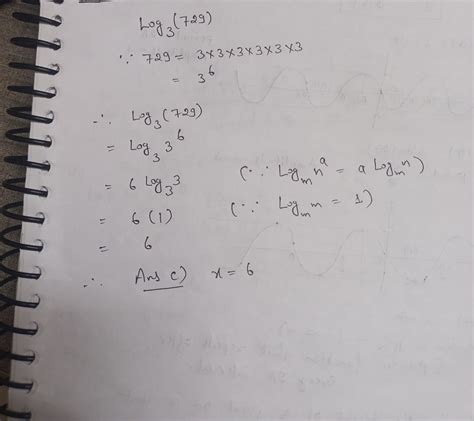 Log₃(729)
∵ 729 = 3×3×3×3×3×3
= 3⁶
∴ Log₃(729)
= Log₃ 3⁶
= 6 Log₃3 (∵ Logₘ nᵃ = a Logₘ n)
= 6 (1) (∵ Logₘ m = 1)
= 6
∴ Ans c) x = 6